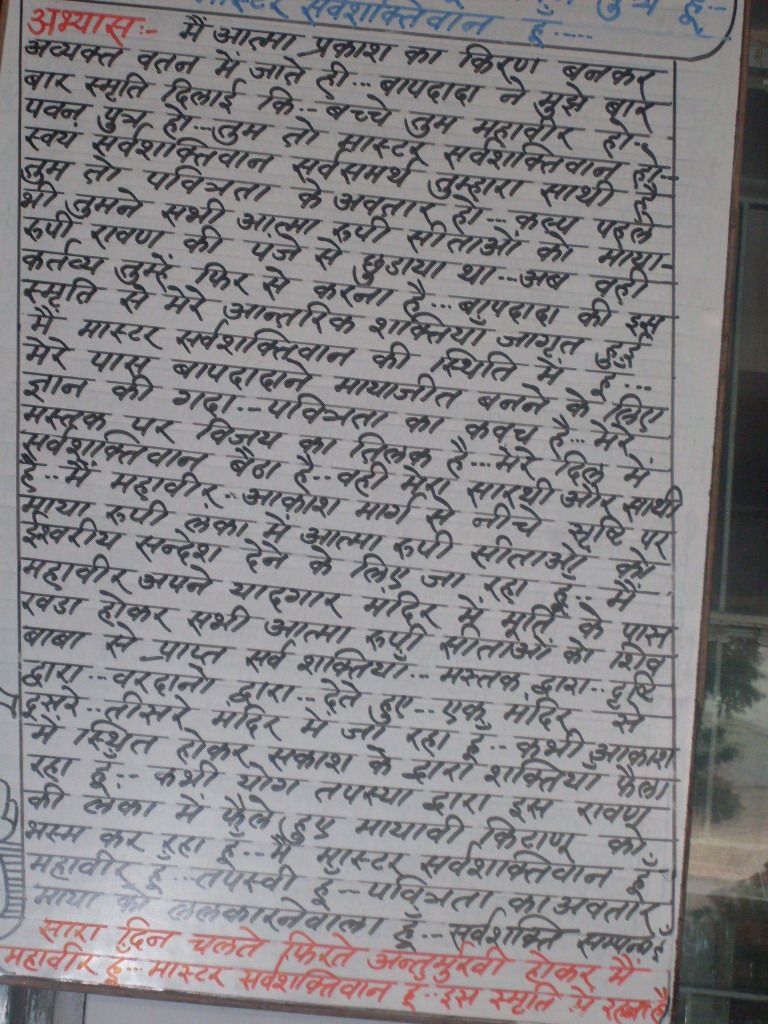 मास्टर सर्वशक्तिवान हूँ....
अभ्यास:- मैं आत्मा प्रकाश का किरण बनकर
अव्यक्त वतन में जाते ही... बापदादा ने मुझे बार
बार स्मृति दिलाई कि... बच्चे तुम महावीर हो..
पवन पुत्र हो... तुम तो मास्टर सर्वशक्तिवान हो..
स्वयं सर्वशक्तिवान सर्वसमर्थ तुम्हारा साथी है
तुम तो पवित्रता के अवतार हो... कल्प पहले
भी तुमने सभी आत्मा रुपी सीताओं को माया-
रुपी रावण की पंजे से छुडाया था... अब वही
कर्तव्य तुम्हें फिर से करना है... बापदादा की इस
स्मृति से मेरे आन्तरिक शक्तियाँ जागृत हुई
मैं मास्टर सर्वशक्तिवान की स्थिति में हूँ...
मेरे पास बापदादाने मायाजीत बनने के लिए
ज्ञान की गदा... पवित्रता का कवच है... मेरे
मस्तक पर विजय का तिलक है... मेरे दिल में
सर्वशक्तिवान बैठा है... वही मेरा सारथी और साथी
है... मैं महावीर.. आकाश मार्ग से नीचे सृष्टि पर
माया रुपी लंका में आत्मा रुपी सीताओं को
ईश्वरीय सन्देश देने के लिए जा रहा हूँ.. मैं
महावीर अपने यादगार मंदिर में मूर्ति के पास
खडा होकर सभी आत्मा रुपी सीताओं को शिव
बाबा से प्राप्त सर्व शक्तियाँ... मस्तक द्वारा.. दृष्टि
द्वारा... वरदानो द्वारा... देते हुए... एक मंदिर से
दूसरे.. तीसरे मंदिर में जा रहा हूँ.. कभी आकाश
में स्थित होकर सकाश के द्वारा शक्तियाँ फैला
रहा हूँ... कभी योग तपस्या द्वारा इस रावण
की लंका में फैले हुए मायावी किटाणू को
भस्म कर रहा हूँ... मैं मास्टर सर्वशक्तिवान हूँ
महावीर हूँ... तपस्वी हूँ... पवित्रता का अवतार
माया को ललकारनेवाला हूँ... सर्वशक्ति सम्पन्न हूँ
सारा दिन चलते फिरते अन्तर्मुखी होकर मैं
महावीर हूँ... मास्टर सर्वशक्तिवान हूँ.. इस स्मृति में रहना है